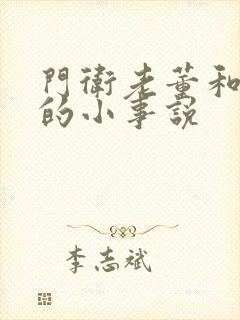 門衛老董和
的小事說
李志斌